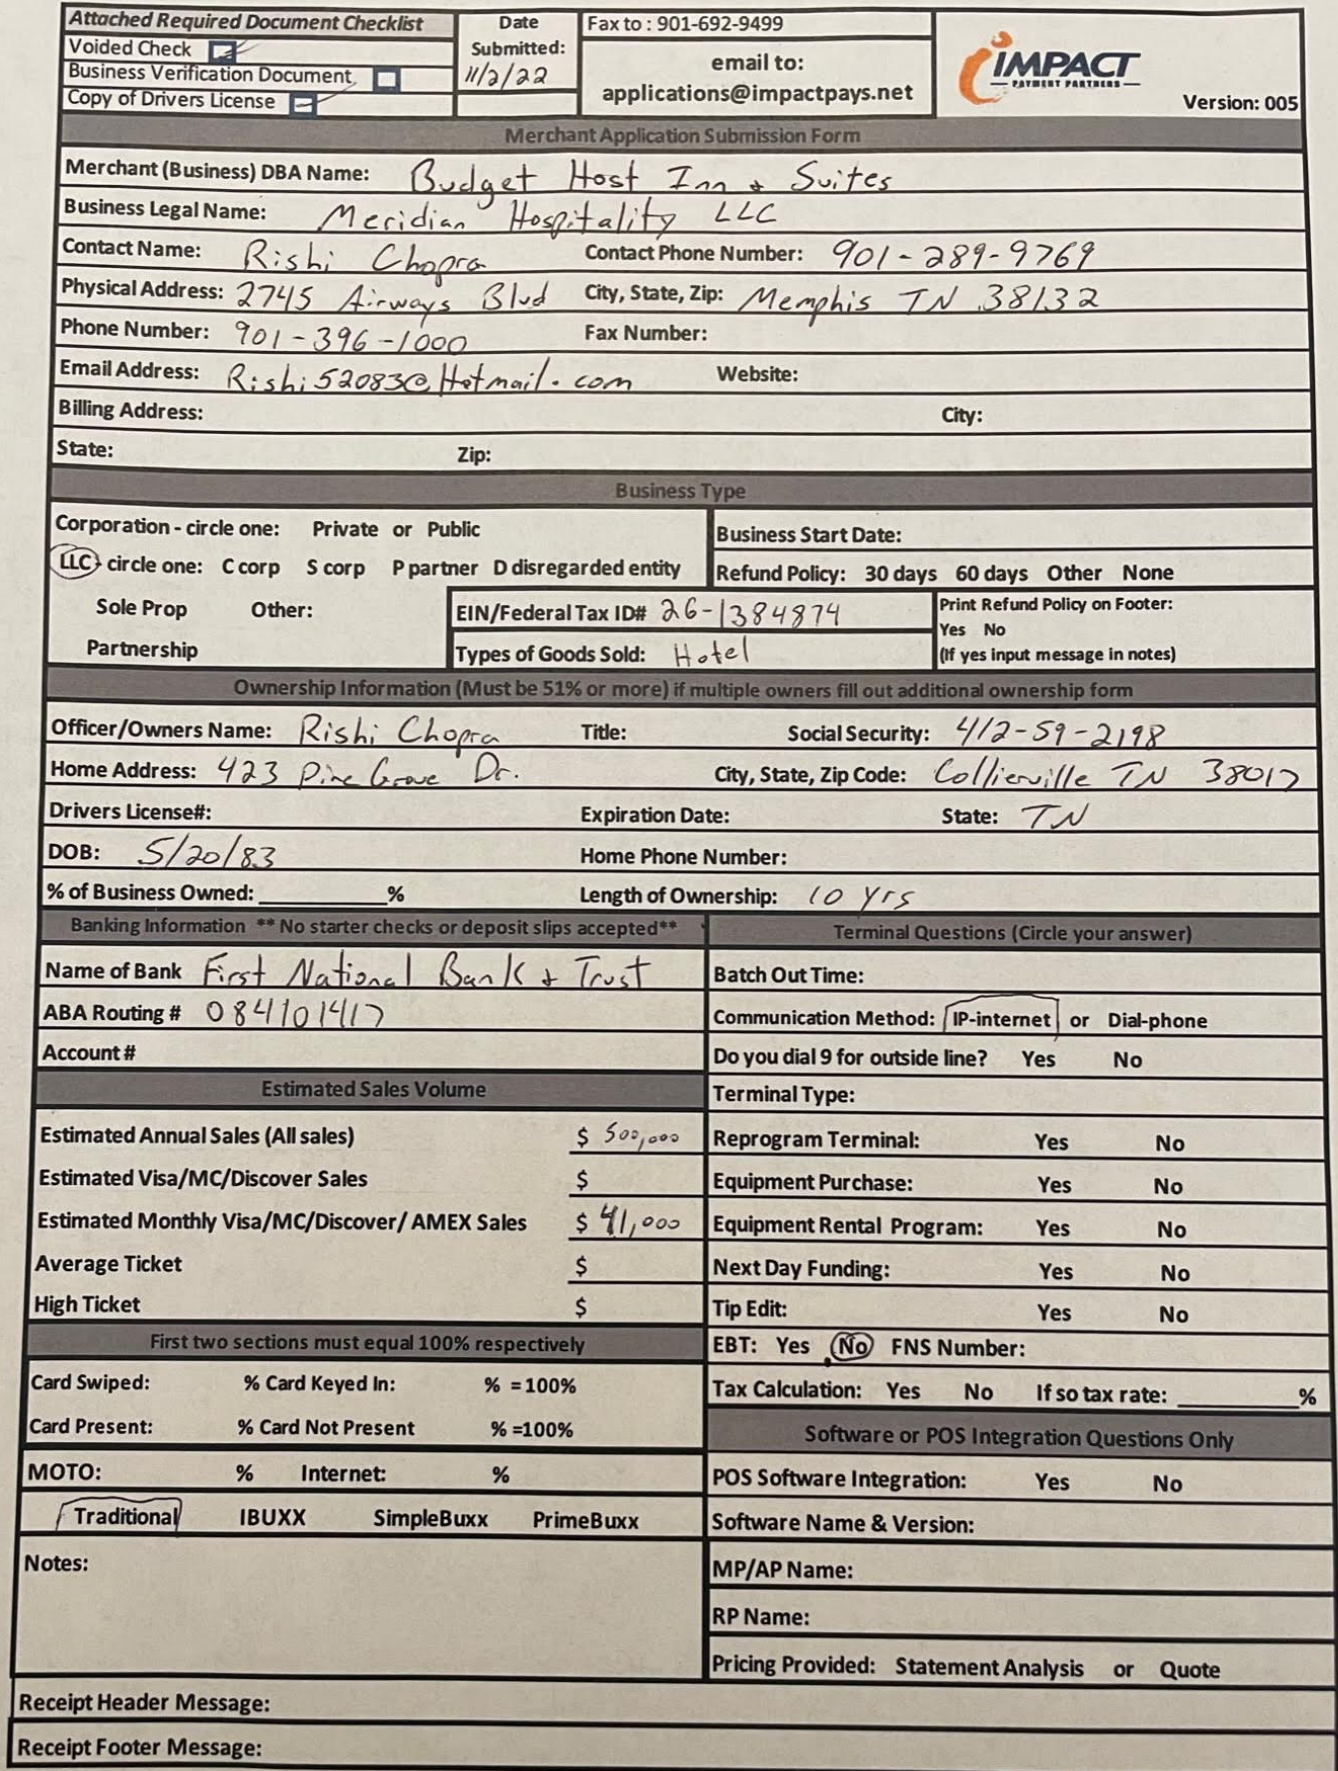 Attached Required Document Checklist
Voided Check
Business Verification Document
Copy of Drivers License
Date
Submitted:
11/2/22
Fax to : 901-692-9499
email to:
applications@impactpays.net
iMPACT
PAYMENT PARTNERS
Version: 005
Merchant Application Submission Form
Merchant (Business) DBA Name: Budget Host Inn & Suites
Business Legal Name: Meridian Hospitality LLC
Contact Name: Rishi Chopra Contact Phone Number: 901-289-9769
Physical Address: 2745 Airways Blvd City, State, Zip: Memphis TN 38132
Phone Number: 901-396-1000 Fax Number:
Email Address: Rishi52083@Hotmail.com Website:
Billing Address: City:
State: Zip:
Business Type
Corporation - circle one: Private or Public
LLC - circle one: C corp S corp P partner D disregarded entity
Sole Prop Other:
Partnership
Business Start Date:
Refund Policy: 30 days 60 days Other None
EIN/Federal Tax ID# 26-1384874
Types of Goods Sold: Hotel
Print Refund Policy on Footer:
Yes No
(If yes input message in notes)
Ownership Information (Must be 51% or more) if multiple owners fill out additional ownership form
Officer/Owners Name: Rishi Chopra Title: Social Security: 412-59-2198
Home Address: 423 Pine Grove Dr. City, State, Zip Code: Collierville TN 38017
Drivers License#: Expiration Date: State: TN
DOB: 5/20/83 Home Phone Number:
% of Business Owned: % Length of Ownership: 10 yrs
Banking Information ** No starter checks or deposit slips accepted**
Name of Bank First National Bank & Trust
ABA Routing # 084101417
Account #
Estimated Sales Volume
Estimated Annual Sales (All sales) $ 500,000
Estimated Visa/MC/Discover Sales $
Estimated Monthly Visa/MC/Discover/ AMEX Sales $ 41,000
Average Ticket $
High Ticket $
First two sections must equal 100% respectively
Card Swiped: % Card Keyed In: % =100%
Card Present: % Card Not Present % =100%
MOTO: % Internet: %
Traditional IBUXX SimpleBuxx PrimeBuxx
Notes:
Terminal Questions (Circle your answer)
Batch Out Time:
Communication Method: IP-internet or Dial-phone
Do you dial 9 for outside line? Yes No
Terminal Type:
Reprogram Terminal: Yes No
Equipment Purchase: Yes No
Equipment Rental Program: Yes No
Next Day Funding: Yes No
Tip Edit: Yes No
EBT: Yes No FNS Number:
Tax Calculation: Yes No If so tax rate: %
Software or POS Integration Questions Only
POS Software Integration: Yes No
Software Name & Version:
MP/AP Name:
RP Name:
Pricing Provided: Statement Analysis or Quote
Receipt Header Message:
Receipt Footer Message: